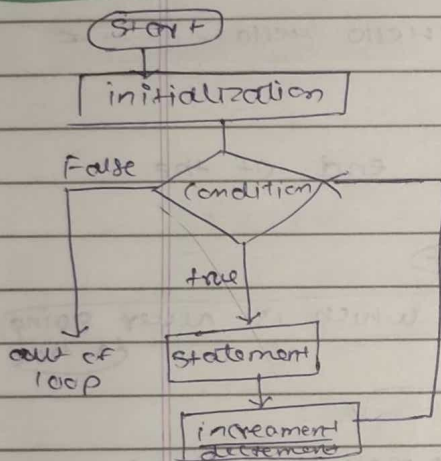 Start
initialization
False
condition
true
out of
loop
statement
increament
decrement